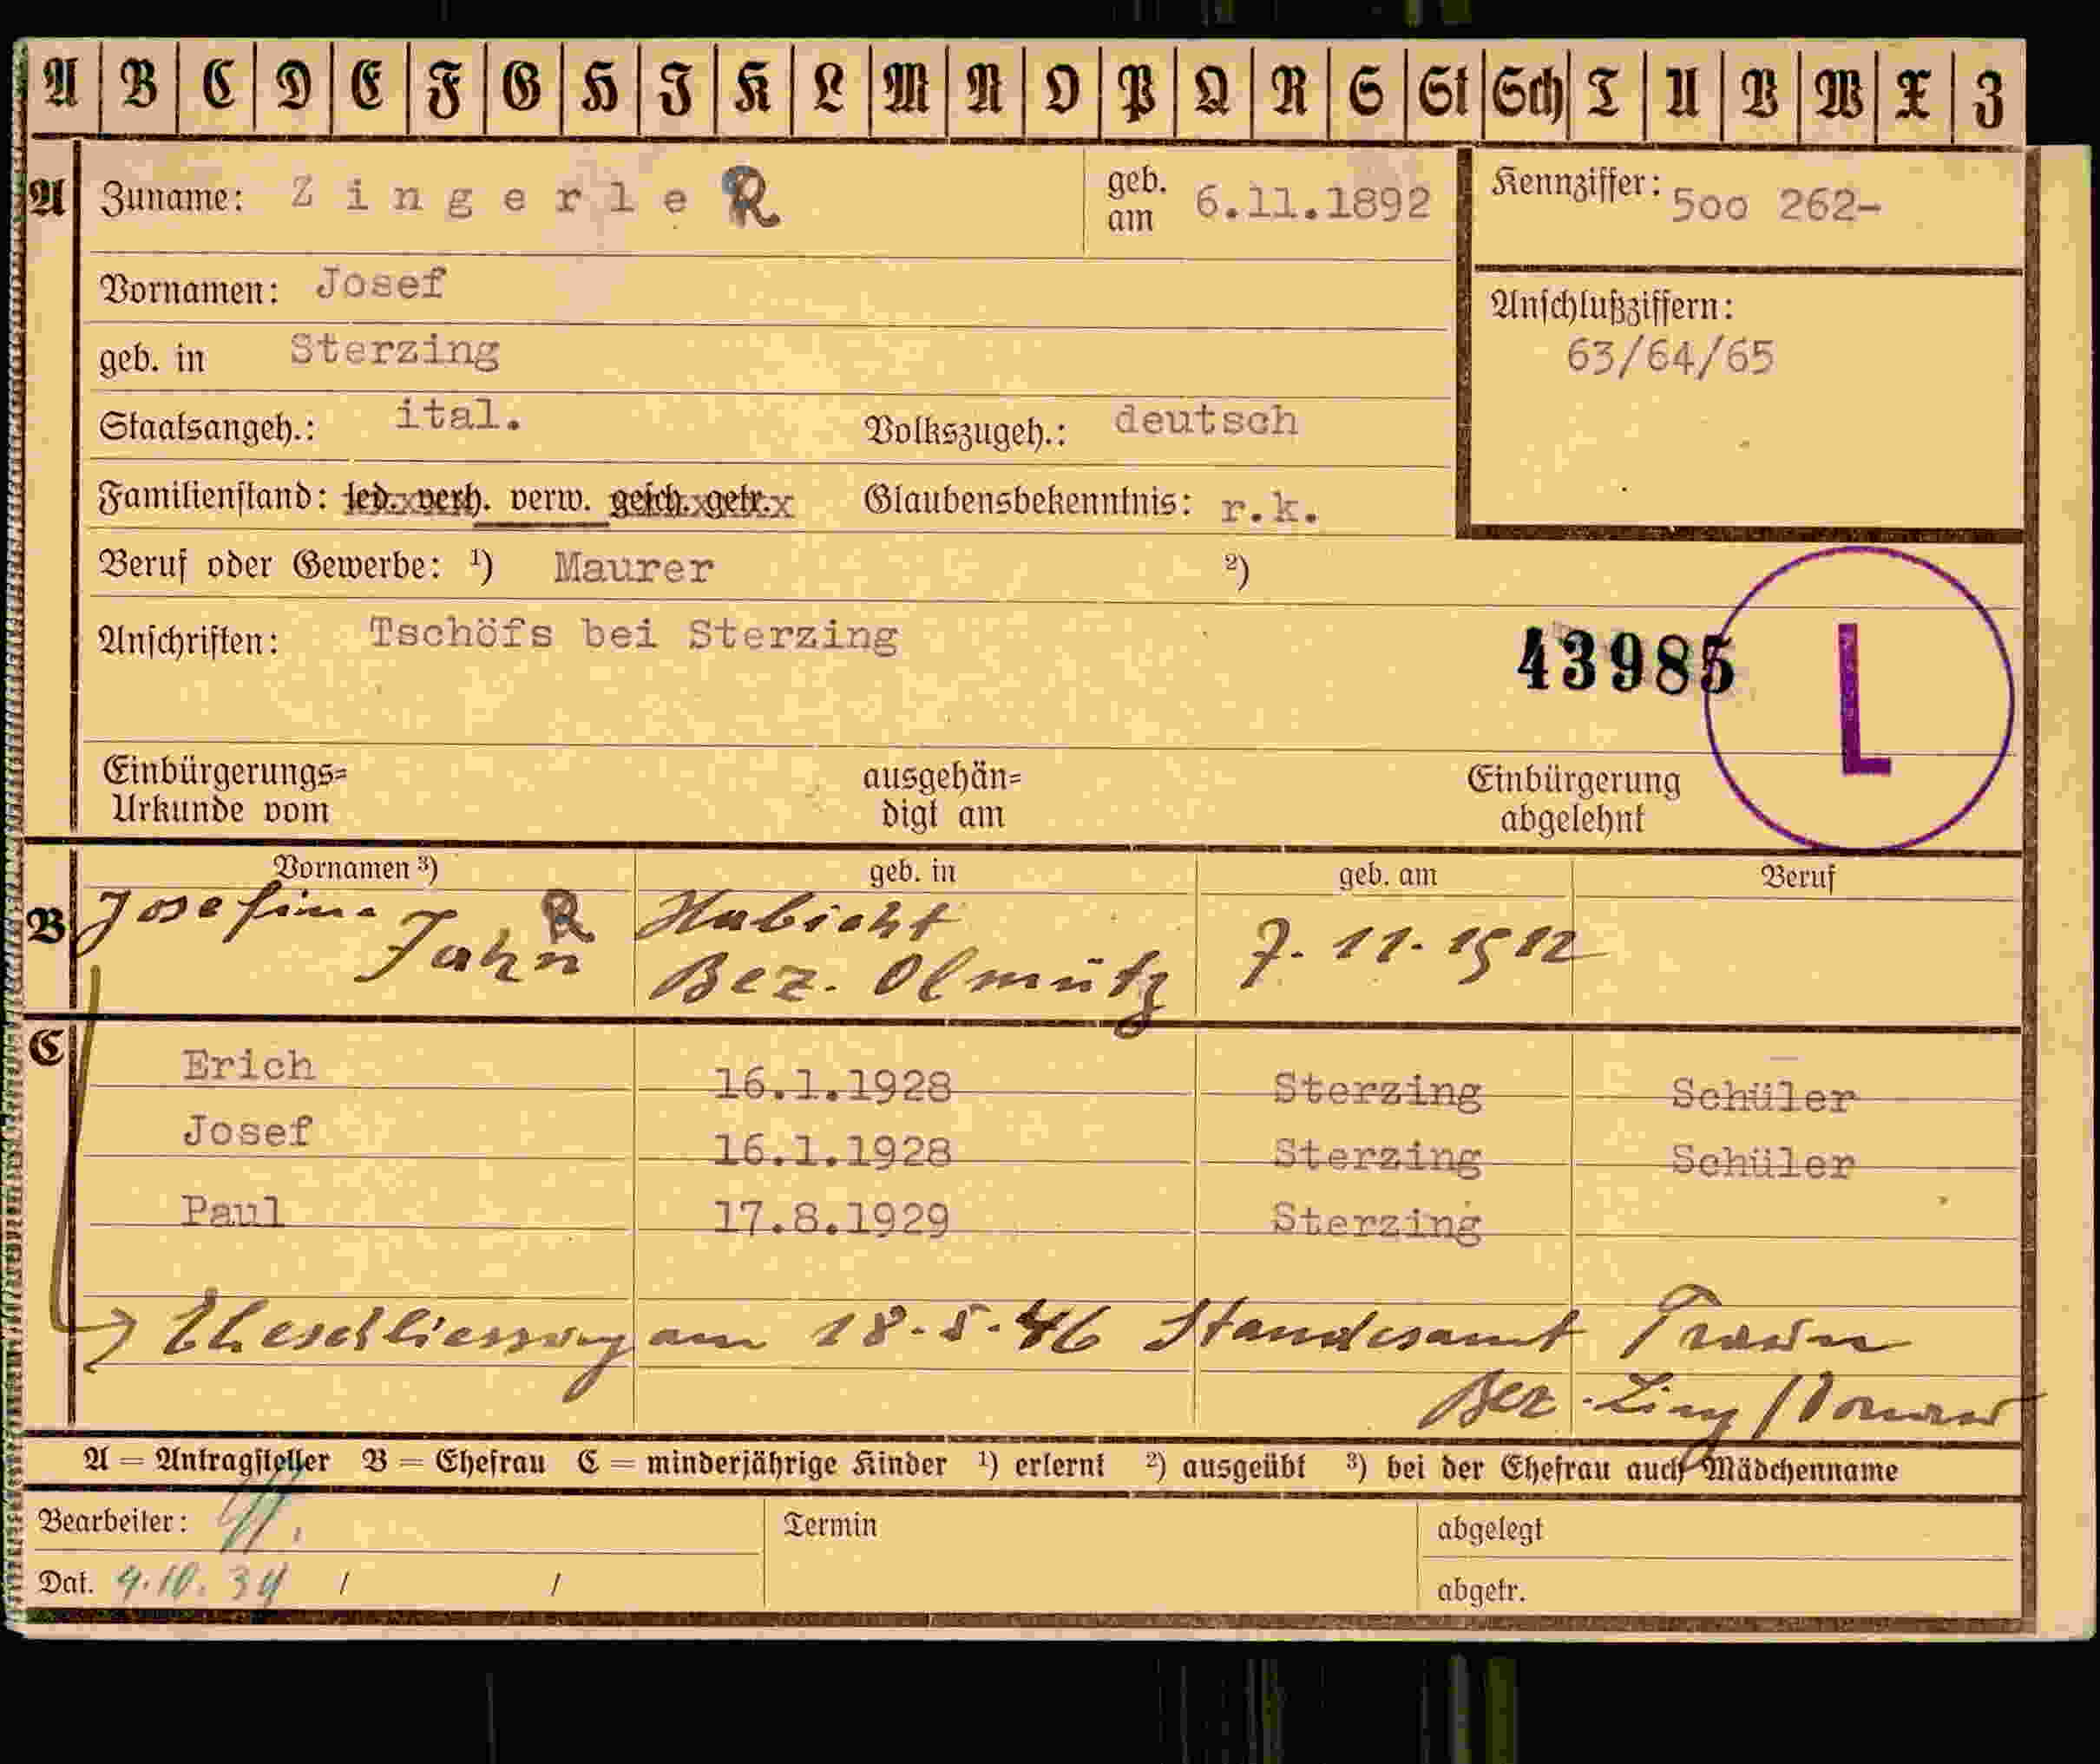 A B C D E F G H J K L M N O P Q R S St Sch T U V W X Z
A Zuname: Zingerle R geb. am 6.11.1892 Kennziffer: 5oo 262-
Vornamen: Josef
Anschlußziffern:
geb. in Sterzing 63/64/65
Staatsangeh.: ital. Volkszugeh.: deutsch
Familienstand: led. verh. verw. gesch. getr. Glaubensbekenntnis: r.k.
Beruf oder Gewerbe: ¹) Maurer ²)
Anschriften: Tschöfs bei Sterzing 43985 L
Einbürgerungs= ausgehän= Einbürgerung
Urkunde vom digt am abgelehnt
Vornamen ³) geb. in geb. am Beruf
B Josefine R Habicht 7.11.1912
Jahn Bez. Olmütz
C
Erich 16.1.1928 Sterzing Schüler
Josef 16.1.1928 Sterzing Schüler
Paul 17.8.1929 Sterzing
Eheschliessung am 18.5.46 Standesamt Traun
Bez. Linz / Donau
A = Antragsteller B = Ehefrau C = minderjährige Kinder ¹) erlernt ²) ausgeübt ³) bei der Ehefrau auch Mädchenname
Bearbeiter: Termin abgelegt
Dat. 4.10.39 / / abgetr.